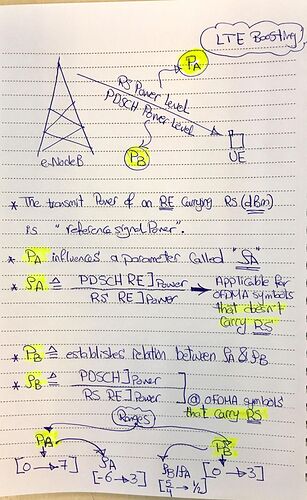 LTE Boosting
PA
RS Power Level
PDSCH Power Level
e-NodeB
PB
UE
* The transmit Power of an RE carrying RS (dBm)
is "reference signal Power".
* PA influences a parameter called "ρA"
* ρA ≜ PDSCH RE] Power / RS RE] Power → Applicable for
OFDMA symbols
that doesn't
carry RS
* PB ≜ establishes relation between ρA & ρB
* ρB ≜ PDSCH] Power / RS RE] Power @ OFDMA symbols
that carry RS
Ranges
PA PB
[0 → 7] ρA ρB/ρA [0 → 3]
[-6 → 3] [5/4 → 1/2]